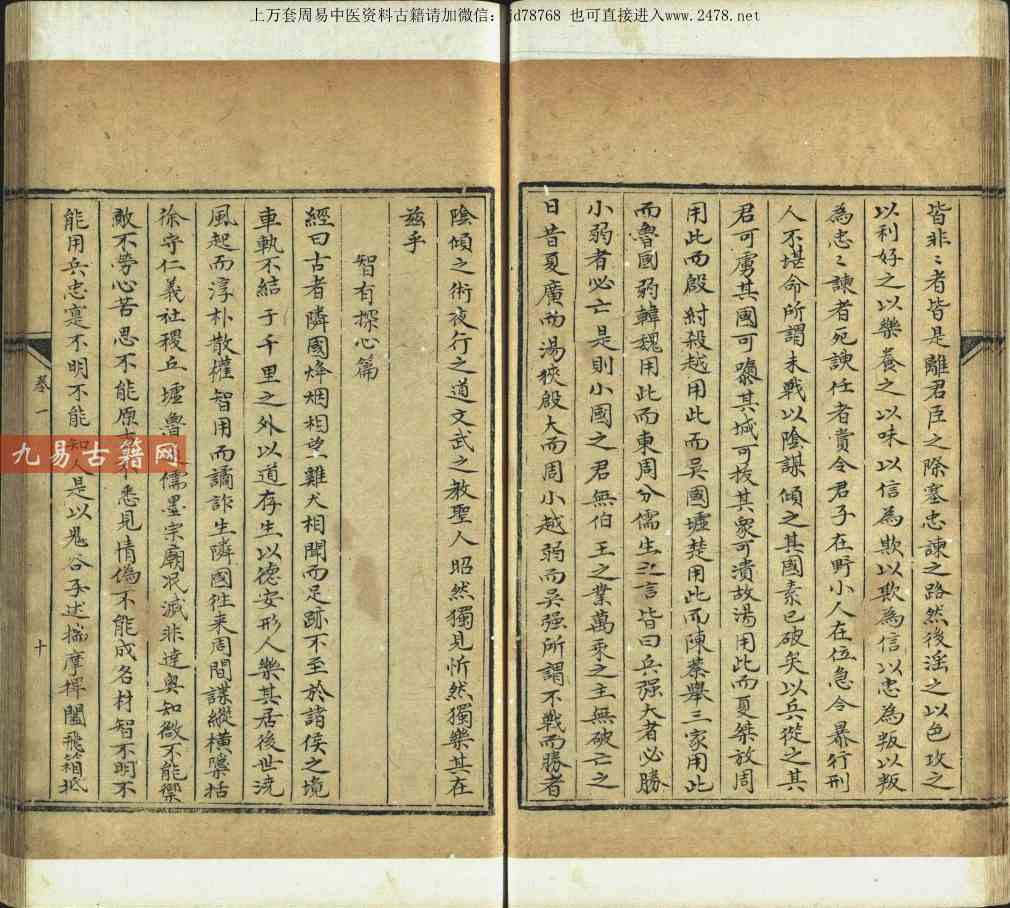 上万套周易中医资料古籍请加微信：jd78768 也可直接进入www.2478.net
皆非〻者皆是離君臣之際塞忠諫之路然後滛之以色攻之
以利好之以樂養之以味以信為欺以欺為信以忠為叛以叛
為忠〻諫者死諛任者賞令君子在野小人在位急令暴行刑
人不堪命所謂未戰以陰謀傾之其國素已破矣以兵從之其
君可虜其國可隳其城可拔其衆可潰故湯用此而夏桀放周
用此而殷紂殺越用此而吳國墟楚用此而陳蔡舉三家用此
而魯國弱韓魏用此而東周分儒生之言皆曰兵强大者必勝
小弱者必亡是則小國之君無伯王之業萬乘之主無破亡之
日昔夏廣而湯狹殷大而周小越弱而吳强所謂不戰而勝者
陰傾之術夜行之道文武之教聖人昭然獨見忻然獨樂其在
兹乎
智有探心篇
經曰古者隣國烽烟相望雞犬相聞而足跡不至於諸侯之境
車軌不結于千里之外以道存生以德安形人樂其居後世澆
風起而淳朴散權智用而譎詐生隣國徃来周間諜縱横隳括
徐守仁義社稷丘墟魯儒墨宗廟泯滅非達奥知微不能禦
敵不勞心苦思不能原不悉見情偽不能成名材智不明不
能用兵忠寔不明不能知人是以鬼谷子述揣摩捭闔飛箱抵
卷一
十
九易古籍网